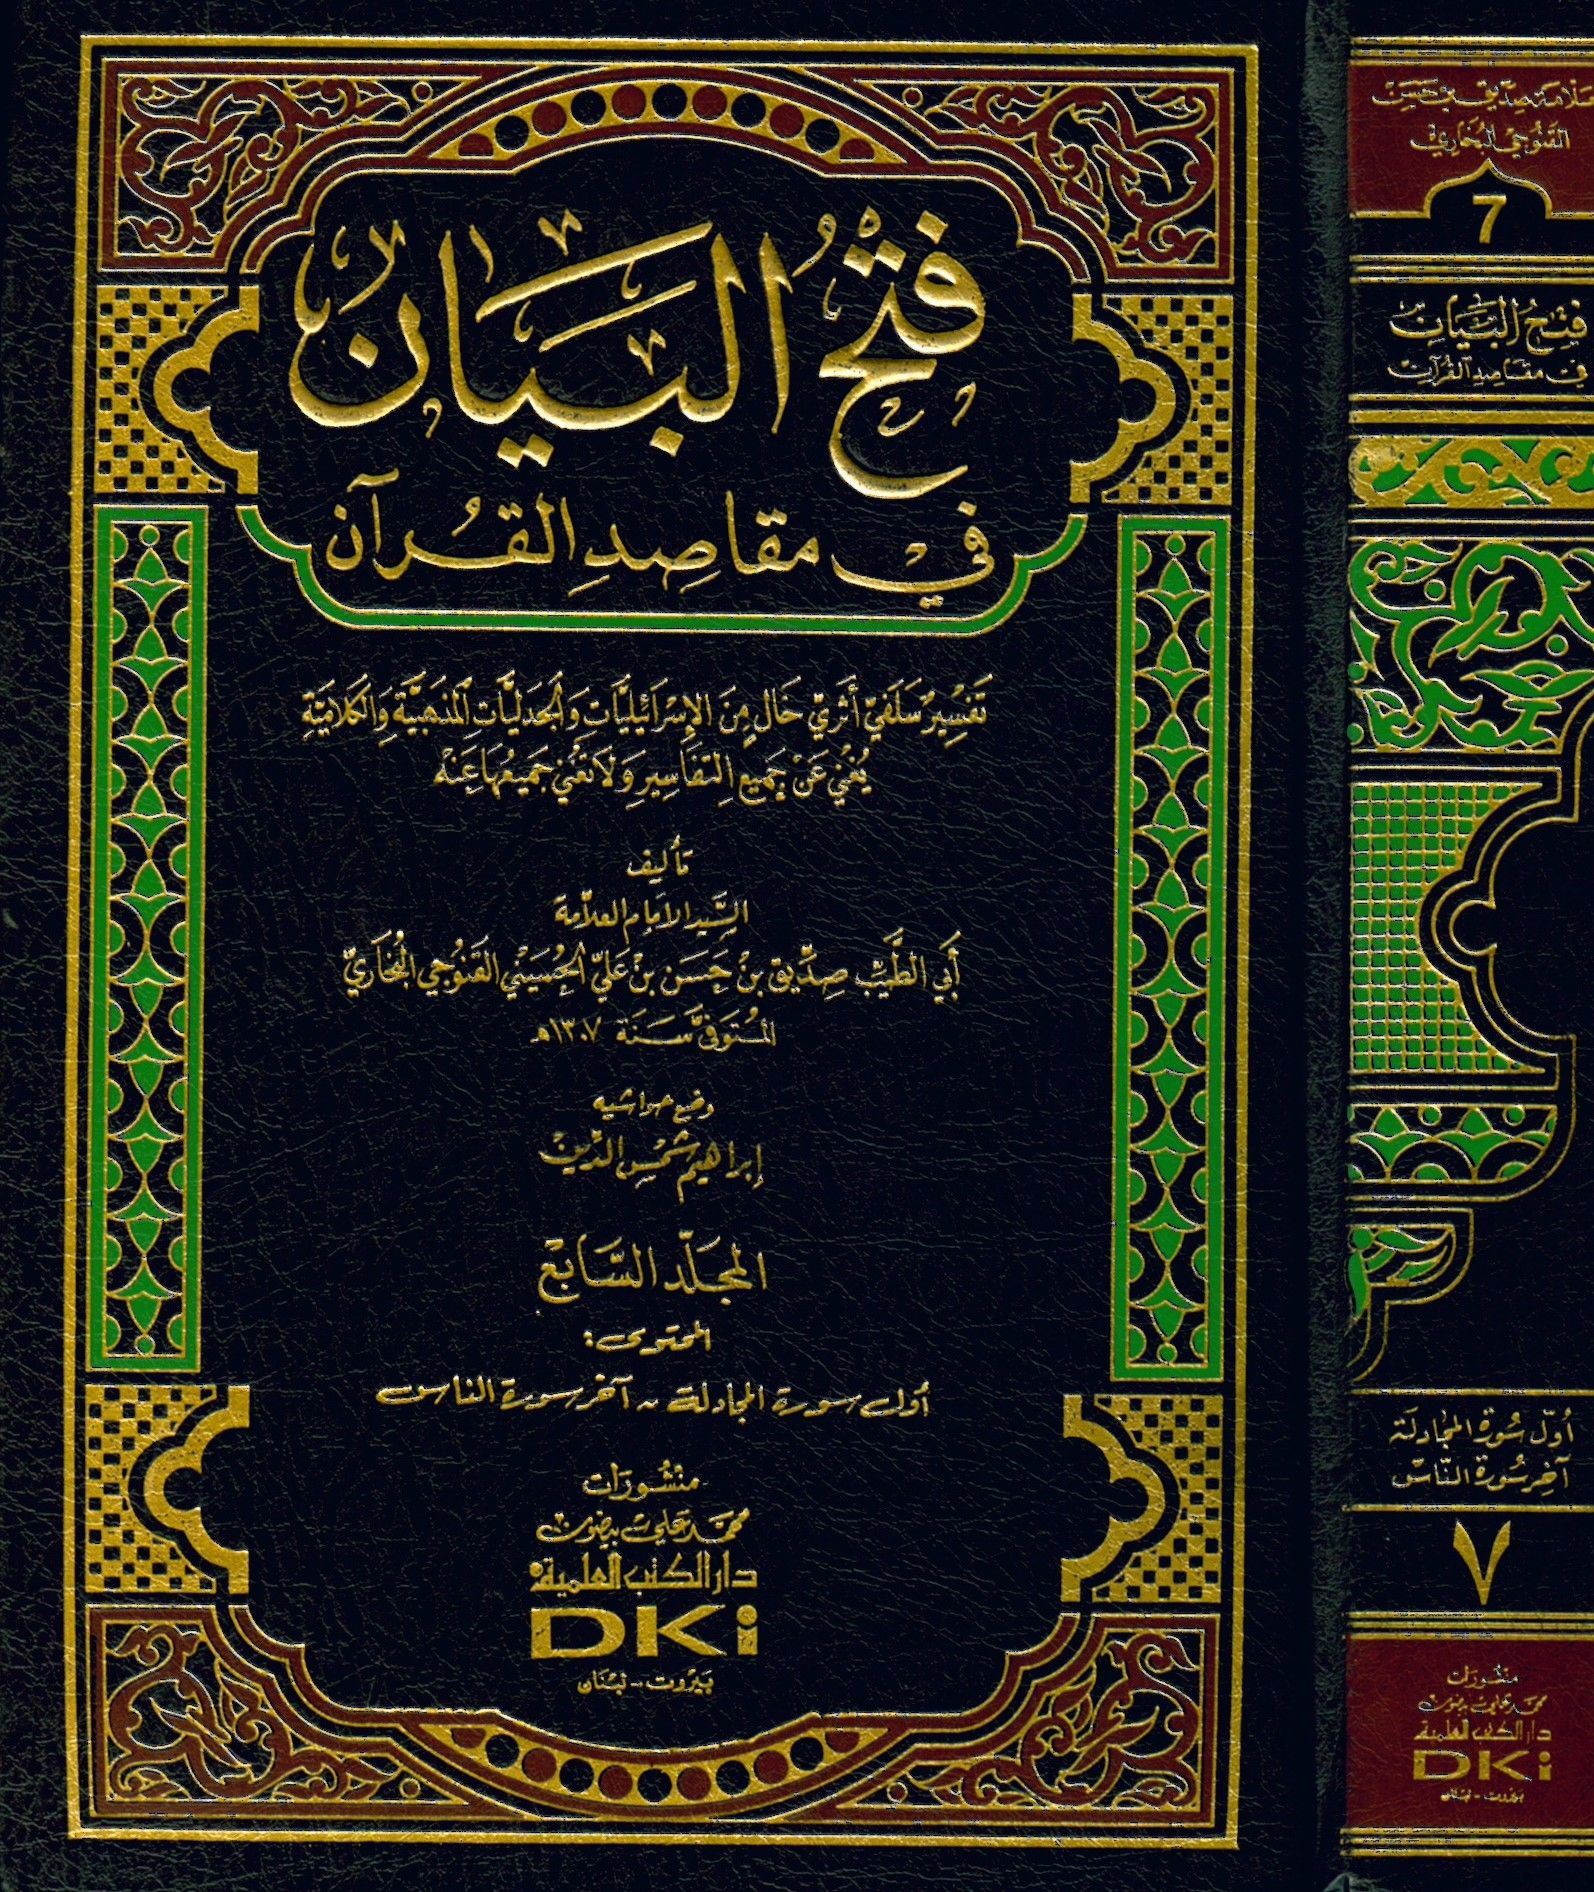 فَتْحُ البَيَان
في مقاصِدِ القُرآن
تَفسِيرٌ سَلَفيّ أَثَريّ خَالٍ مِنَ الإِسْرَائيليَّاتِ وَالجَدليَّاتِ المَذهَبيَّةِ وَالكَلَاميَّةِ
يُغْني عَنْ جَميعِ التفَاسِيرِ وَلَا تُغْني جَميعُهَا عَنْه
تأليف
السَّيّد الإمام العلّامة
أَبي الطَّيِّب صِدِّيق بنُ حَسَن بنْ عَليّ الحُسَيْني القنُوجي البُخَاريّ
المُتوَفَّى سَنَة ١٣٠٧هـ
وضع حواشيه
إبراهيم شمس الدّين
المجلّد السَّابع
المحتوى:
أول سورة المجادلة - آخر سورة الناس
منشورَات
محمد علي بيضون
دار الكتب العلمية
DKi
بَيْرُوت - لبْنان
العلامة صديق بن حسن
القنوجي البخاري
7
فتح البَيَان
في مقاصِد القُرآن
أوّل سُورَة المجَادلَة
آخر سُورَة النَّاس
٧
منشورات
محمد علي بيضون
دار الكتب العلمية
DKi
بيروت - لبنان